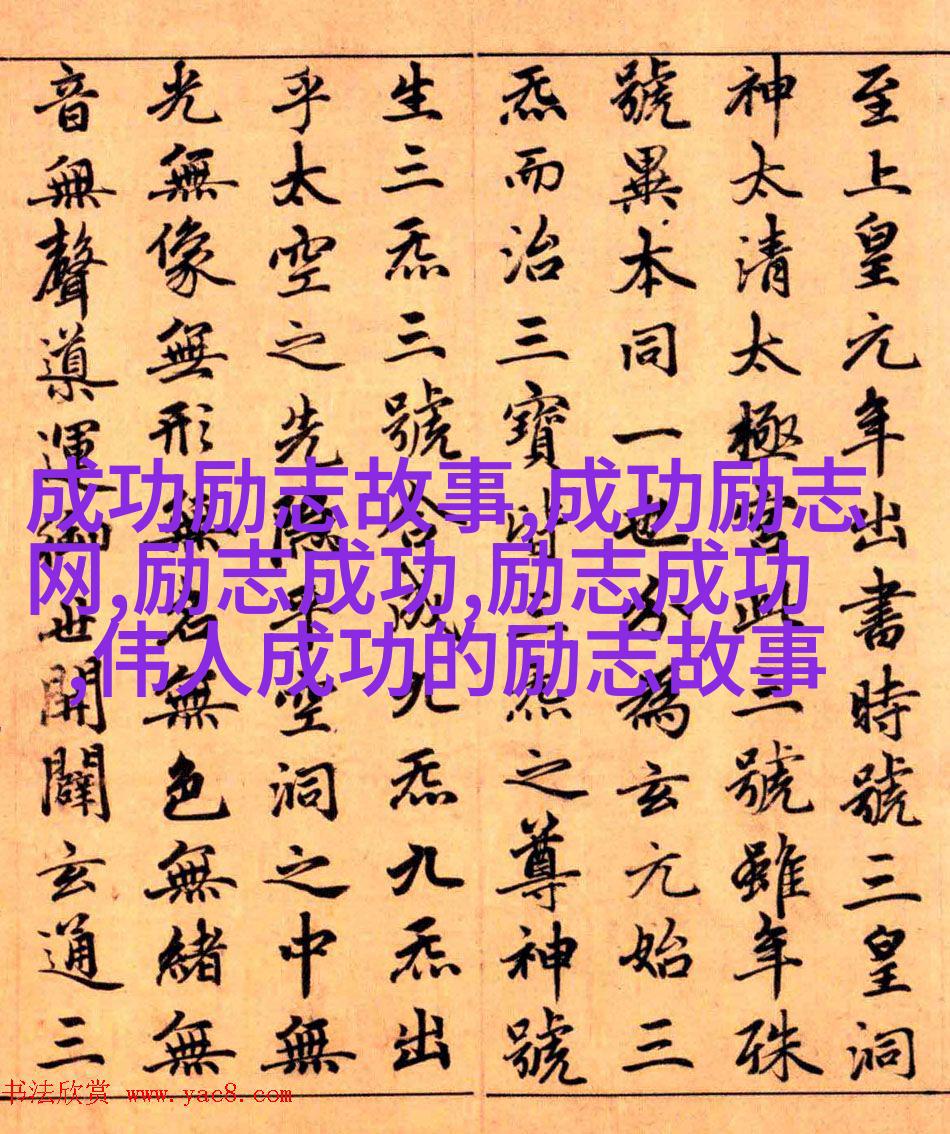 至上皇元年出書時號三皇洞
神太清太極宮此三號雖年殊
號異本同一也分為玄元始三
炁而治三寶皆三炁之尊神號
生三炁三號合成九炁九炁出
乎太空之先隱乎空洞之中無
光無像無形無名無色無緒無
音無聲導運御世開闢玄通三
成功励志故事,成功励志
网,励志成功,励志成功
,伟人成功的励志故事
书法欣赏 www.yac8.com